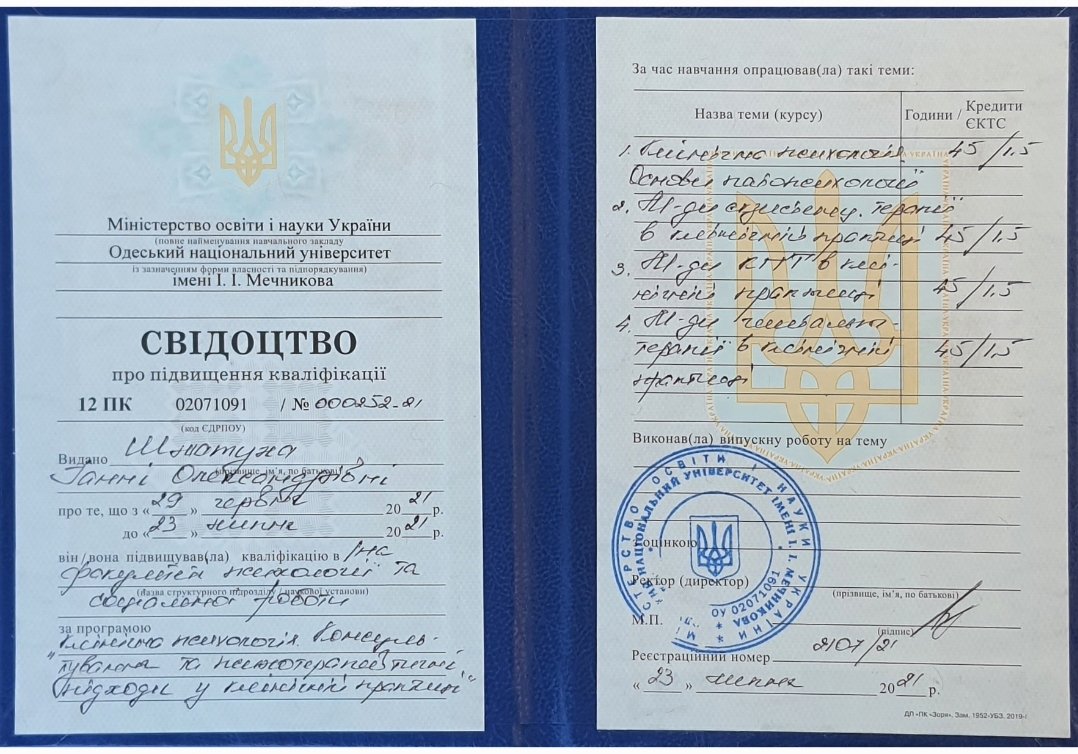 Міністерство освіти і науки України
(повне найменування навчального закладу
Одеський національний університет
із зазначенням форми власності та підпорядкування)
імені І. І. Мечникова
СВІДОЦТВО
про підвищення кваліфікації
12 ПК 02071091 / № 000252-21
(код ЄДРПОУ)
Видано
(прізвище, ім’я, по батькові)
Ганні Олександрівні
про те, що з «29» червня 2021 р.
до «23» липня 2021 р.
він/вона підвищував(ла) кваліфікацію в/на
факультеті психології та
(назва структурного підрозділу / наукової установи)
соціальної роботи
за програмою
"Клінічна психологія. Консуль-
тування та психотерапевтичні
підходи у клінічній практиці"
За час навчання опрацював(ла) такі теми:
Назва теми (курсу) Години / Кредити ЄКТС
1. Клінічна психологія 45/1.5
Основи патопсихології
2. М-ди терапії
в клінічній практиці 45/1.5
3. М-ди КПТ в клі-
нічній практиці 45/1.5
4. М-ди гештальт-
терапії в клінічній 45/1.5
практиці
Виконав(ла) випускну роботу на тему
з оцінкою
Ректор (директор)
(прізвище, ім’я, по батькові)
М.П.
(підпис)
Реєстраційний номер 2107/21
«23» липня 2021 р.
ДП «ПК «Зоря». Зам. 1952-УБЗ. 2019-І
МІНІСТЕРСТВО ОСВІТИ І НАУКИ УКРАЇНИ
НАЦІОНАЛЬНИЙ УНІВЕРСИТЕТ ІМЕНІ І. І. МЕЧНИКОВА
02071091